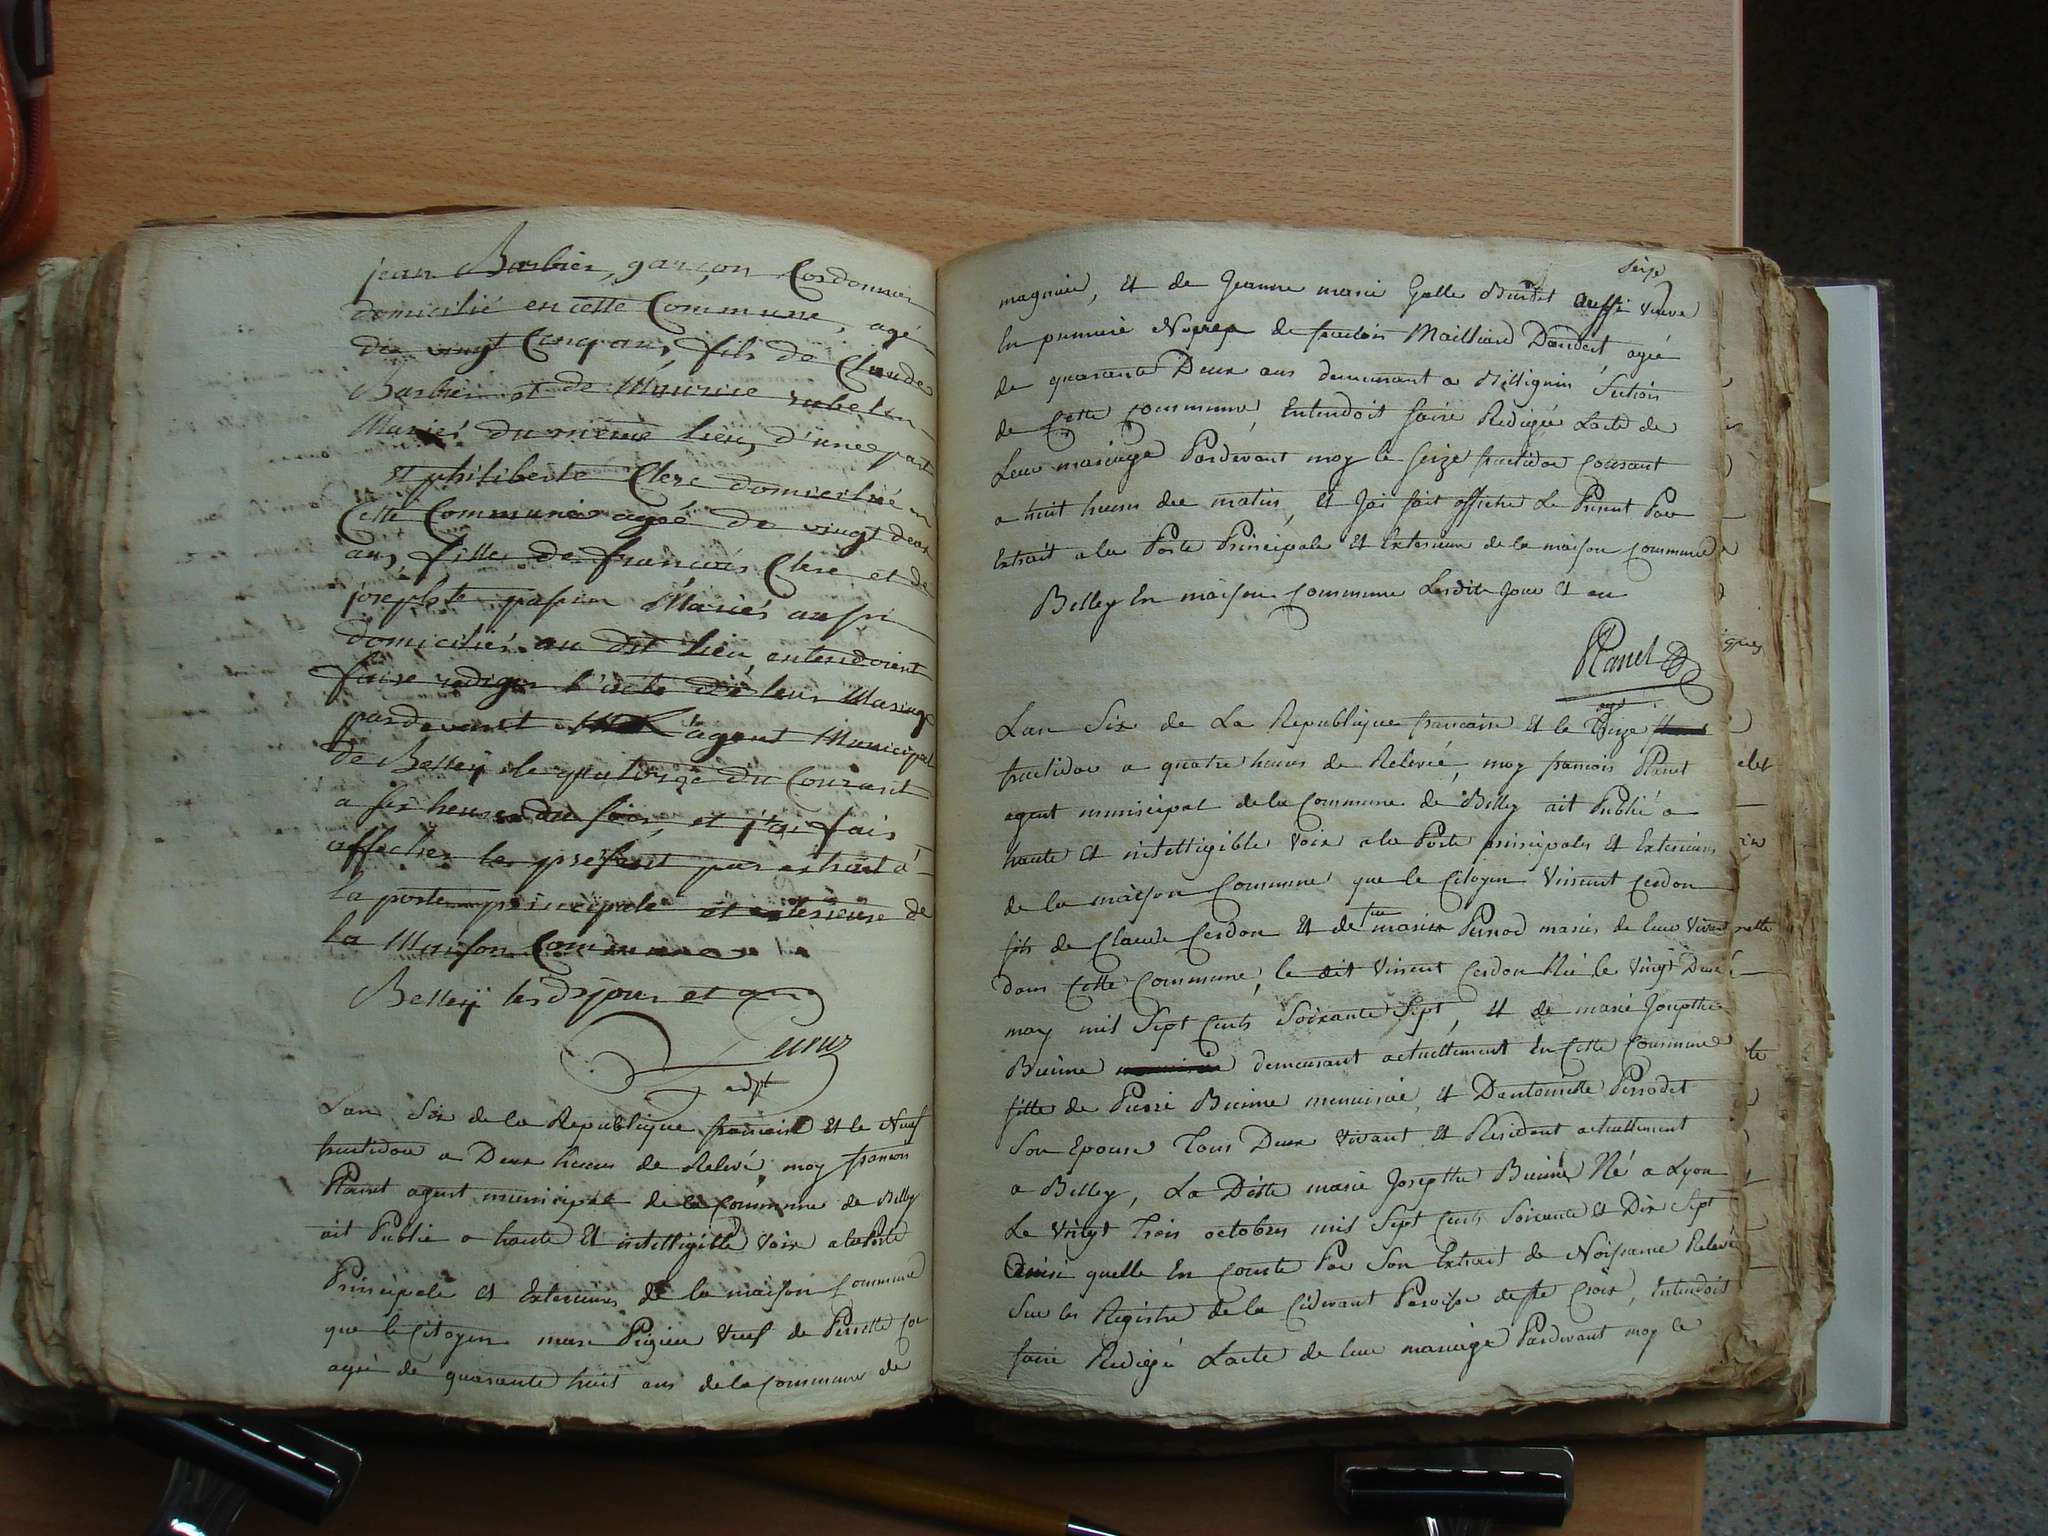 jean Barbier, garçon Cordonnier
domicilié en cette Commune, agé
de vingt Cinq ans, fils de Claude
Barbier et de Maurice
Mariés du même lieu, d'une part
et philiberte Clerc domiciliée en
Cette Commune agée de vingt deux
ans, fille de françois Clerc et de
josephte papin Mariés aussi
domiciliés au dit lieu, entendoient
faire rediger l'acte de leur Mariage
pardevant l'agent Municipal
de Belley le quatorze du Courant
a six heures du soir, et j'ai fais
afficher les present par extrait à
la porte principale et exterieure de
la Maison Commune
Belley lesdits jour et an
adjt
Lan Six de la Republique francaise Et le Neuf
fructidor a Deux heures de Relevé, moy francois
Planet agent municipal de la Commune de Belley
ait Publié a haute Et intelligible Voix a la Porte
Principale Et Exterieure de la maison Commune
que le Citoyen marc Pigieu Veuf de Pierrette
agé de quarante huit ans de la Commune de
seize
magnieu, Et de Jeanne marie Galle aussi Veuve
En premiere Nopces de Mailliard Dandert agée
de quarante Deux ans demeurant a Billignin Section
de Cette Commune, Entendoit faire Redigée Lacte de
Leur mariage Pardevant moy le Seize fructidor Courant
a huit heures du matin, Et Jai fait afficher Le Present Par
Extrait a la Porte Principale Et Exterieure de la maison Commune
Belley En maison Commune Lesdits Jour Et an
Planet
agt
Lan Six de La Republique francaise Et le Onze
fructidor a quatre heures de Relevée, moy francois Planet
agent municipal de la Commune de Belley ait Publié a
haute Et intelligible Voix a la Porte principales Et Exterieures
de la maison Commune que le Citoyen Vincent Cerdon
fils de Claude Cerdon Et de feue marie Pernod mariés de leur Vivant
dans Cette Commune, le dit Vincent Cerdon Né le Vingt Deux
may mil Sept Cents Soixante Sept, Et de marie Josepthe
Bieime demeurant actuellement En Cette Commune
fille de Pierre Bieime menuisié, Et Dantoinette Perrodet
Son Epouse Tous Deux Vivant Et Resident actuellement
a Belley, La Ditte marie Josepthe Bieime Né a Lyon
Le Vingt Trois octobres mil Sept Cents Soixante Et Dix Sept
Ainsi quelle En Conste Par Son Extrait de Naissance Relevé
Sur les Registre de la Cidevant Paroisse de Ste Croix, Entendoit
faire Redigé Lacte de leur mariage Pardevant moy le